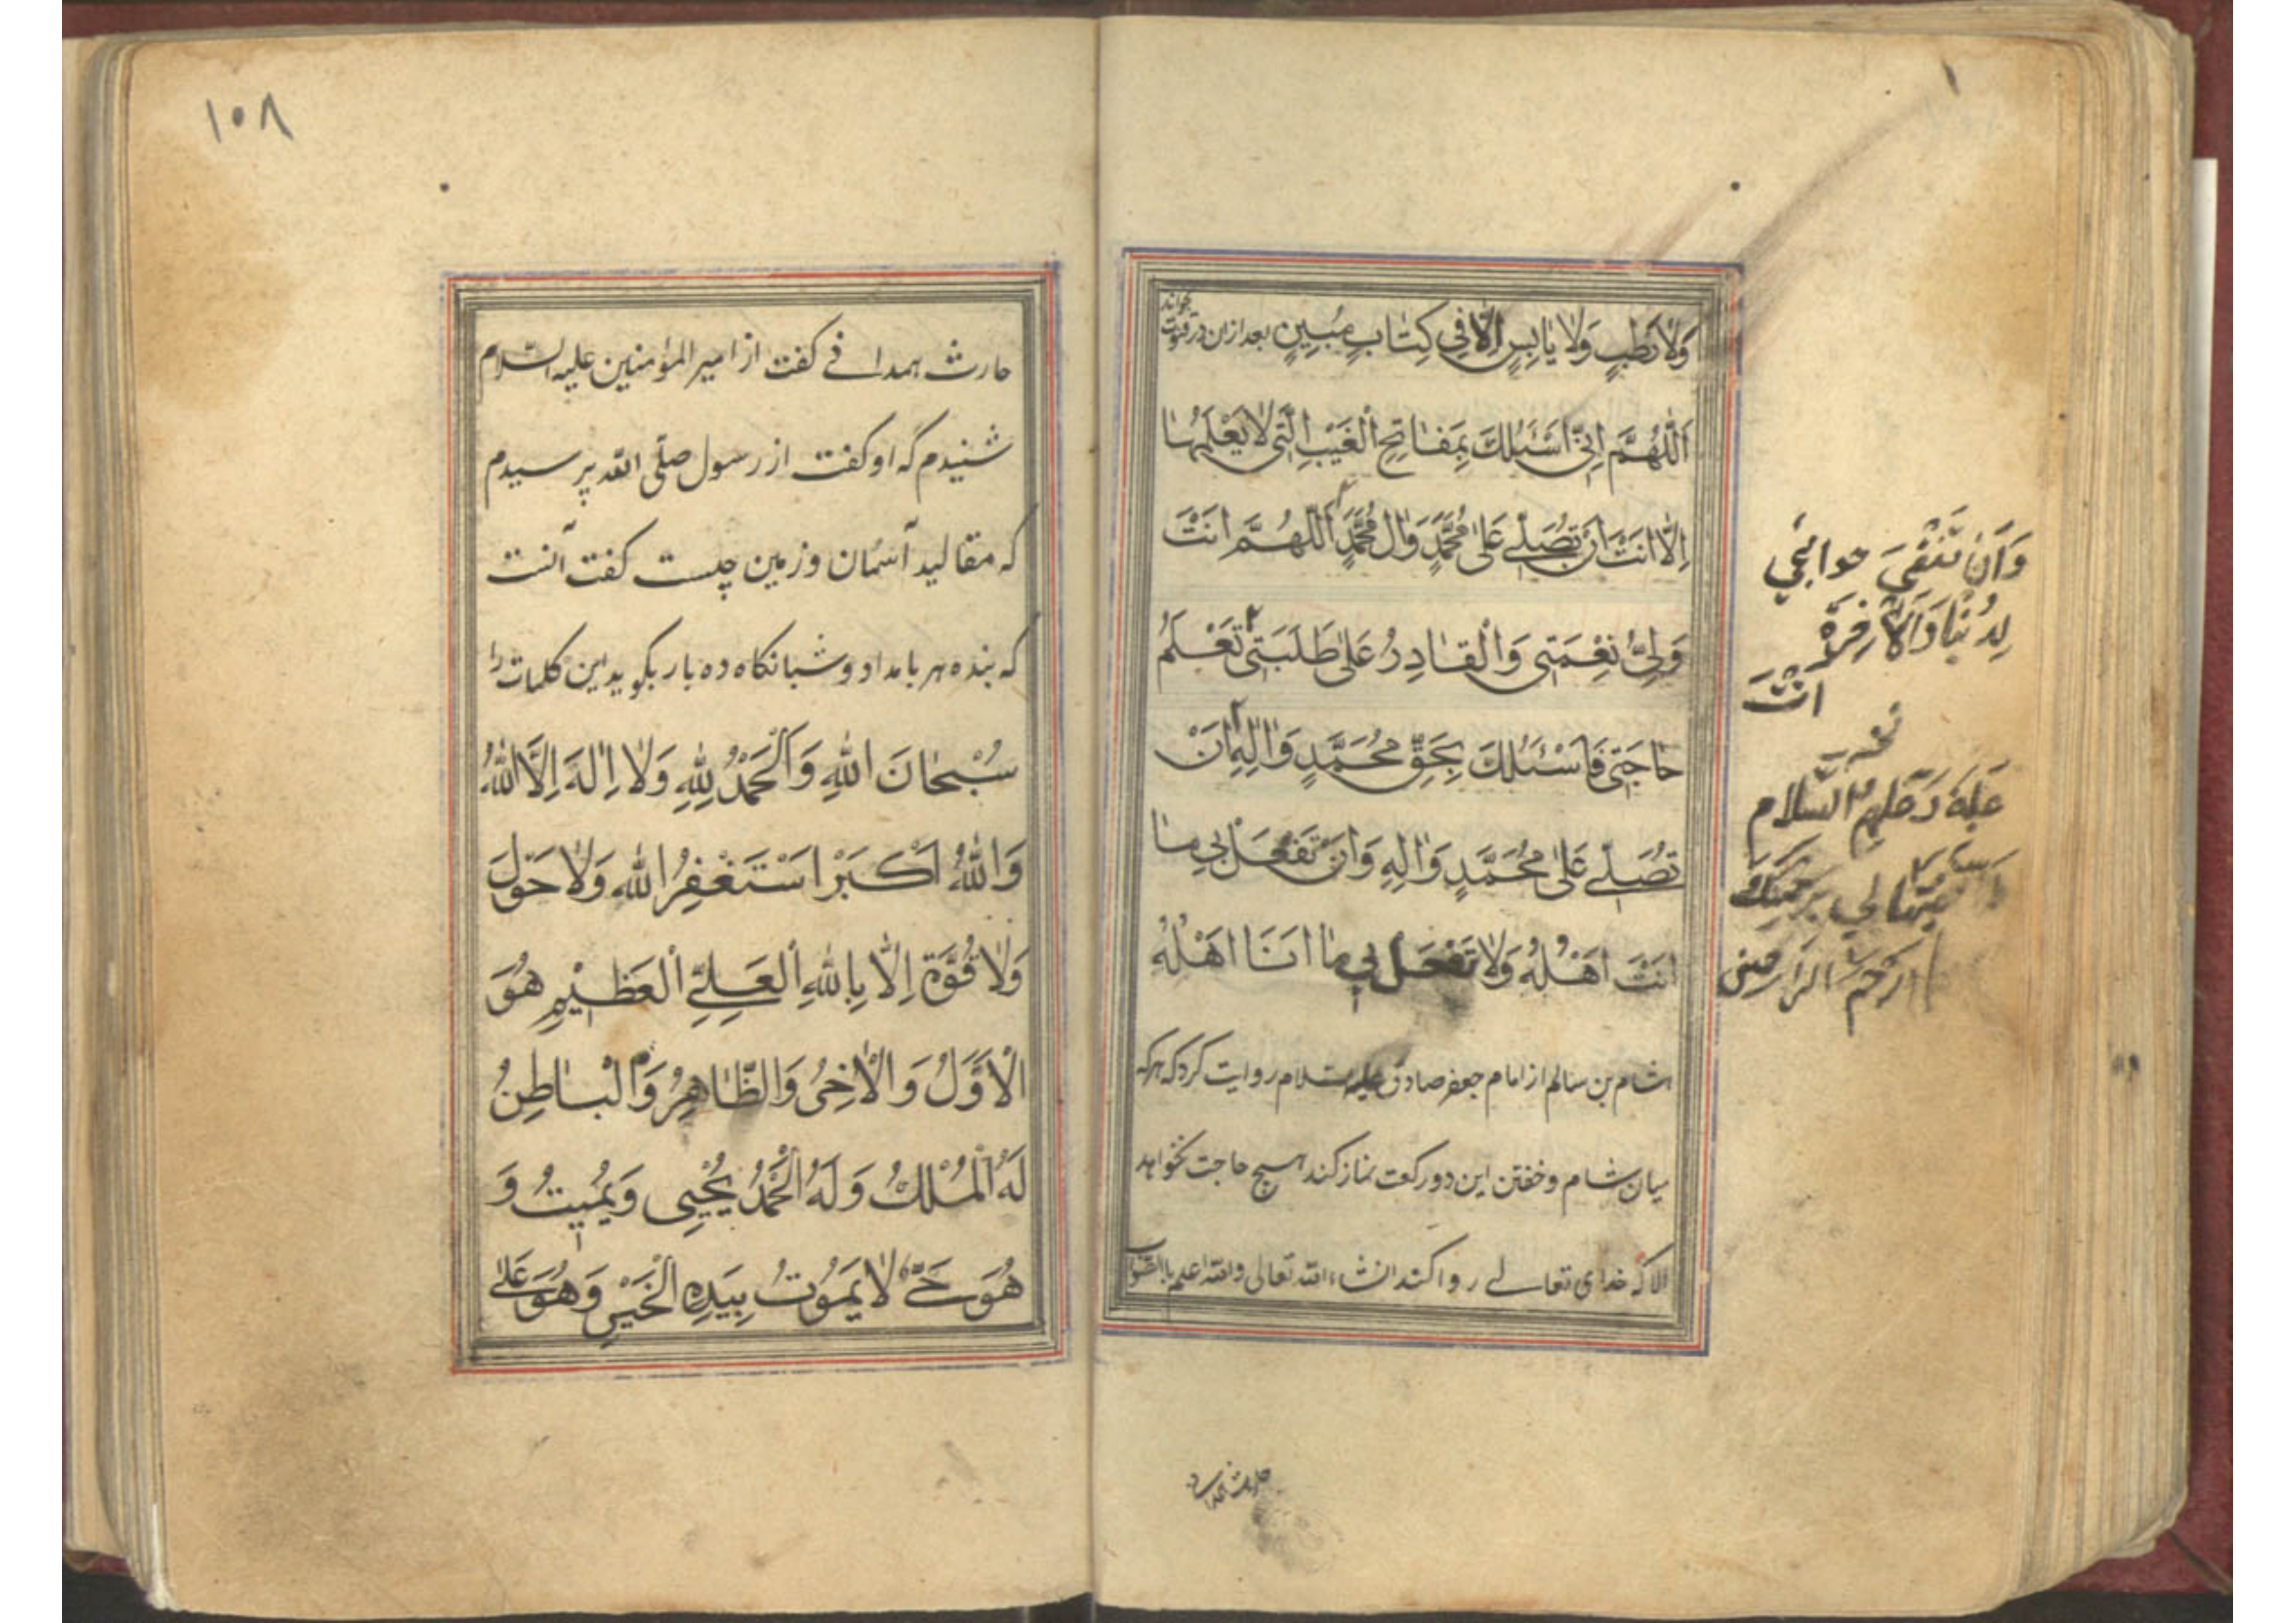 وَلاٰ رَطْبٍ وَلاٰ یٰابِسٍ اِلّاٰ فِی کِتٰابٍ مُبٖینٍ بعد ازان در قنوت بخواند
اَللّٰهُمَّ اِنّی اَسْئَلُكَ بِمَفٰاتِحِ الْغَیْبِ الَّتی لاٰ یَعْلَمُهٰا
اِلّاٰ اَنْتَ اَنْ تُصَلّیَ عَلیٰ مُحَمَّدٍ وَاٰلِ مُحَمَّدٍ اَللّٰهُمَّ اَنْتَ
وَلِیُّ نِعْمَتی وَالْقٰادِرُ عَلیٰ طَلِبَتی تَعْلَمُ
حٰاجَتی فَاَسْئَلُكَ بِحَقِّ مُحَمَّدٍ وَاٰلِهِ اَنْ
تُصَلّیَ عَلیٰ مُحَمَّدٍ وَاٰلِهِ وَاَنْ تَفْعَلَ بی مٰا
اَنْتَ اَهْلُهُ وَلاٰ تَفْعَلْ بی مٰا اَنَا اَهْلُهُ
هشام بن سالم از امام جعفر صادق علیه السلام روایت کرد که هر که
میان شام و خفتن این دو رکعت نماز کند هیچ حاجت نخواهد
الا که خدای تعالی روا کند انشاء الله تعالی والله اعلم بالصّواب
وَاَنْ تَقْضِیَ حوائجی
لِلدُنیا وَالآخِرَة
اَنْتَ
علیه وَعَلَیهِمُ السّلام
لی بِرَحْمَتِكَ
یا اَرْحَمَ الرّاحِمین
حارث همدانی
۱۰۸
حارث همدانی گفت از امیر المؤمنین علیه السّلام
شنیدم که او گفت از رسول صلّی الله پرسیدم
که مقالید آسمان و زمین چیست گفت آنست
که بنده هر بامداد و شبانگاه ده بار بگوید این کلمات را
سُبْحٰانَ اللهِ وَالْحَمْدُ لِلّٰهِ وَلاٰ اِلٰهَ اِلَّا اللهُ
وَاللهُ اَکْبَرْ اَسْتَغْفِرُ اللهَ وَلاٰ حَوْلَ
وَلاٰ قُوَّةَ اِلّاٰ بِاللهِ الْعَلِیِّ الْعَظیٖمِ هُوَ
الْاَوَّلُ وَالْاٰخِرُ وَالظّٰاهِرُ وَالْبٰاطِنُ
لَهُ الْمُلْكُ وَلَهُ الْحَمْدُ یُحْیی وَیُمیٖتُ وَ
هُوَ حَیٌّ لاٰ یَمُوتُ بِیَدِهِ الْخَیْرِ وَهُوَ عَلیٰ